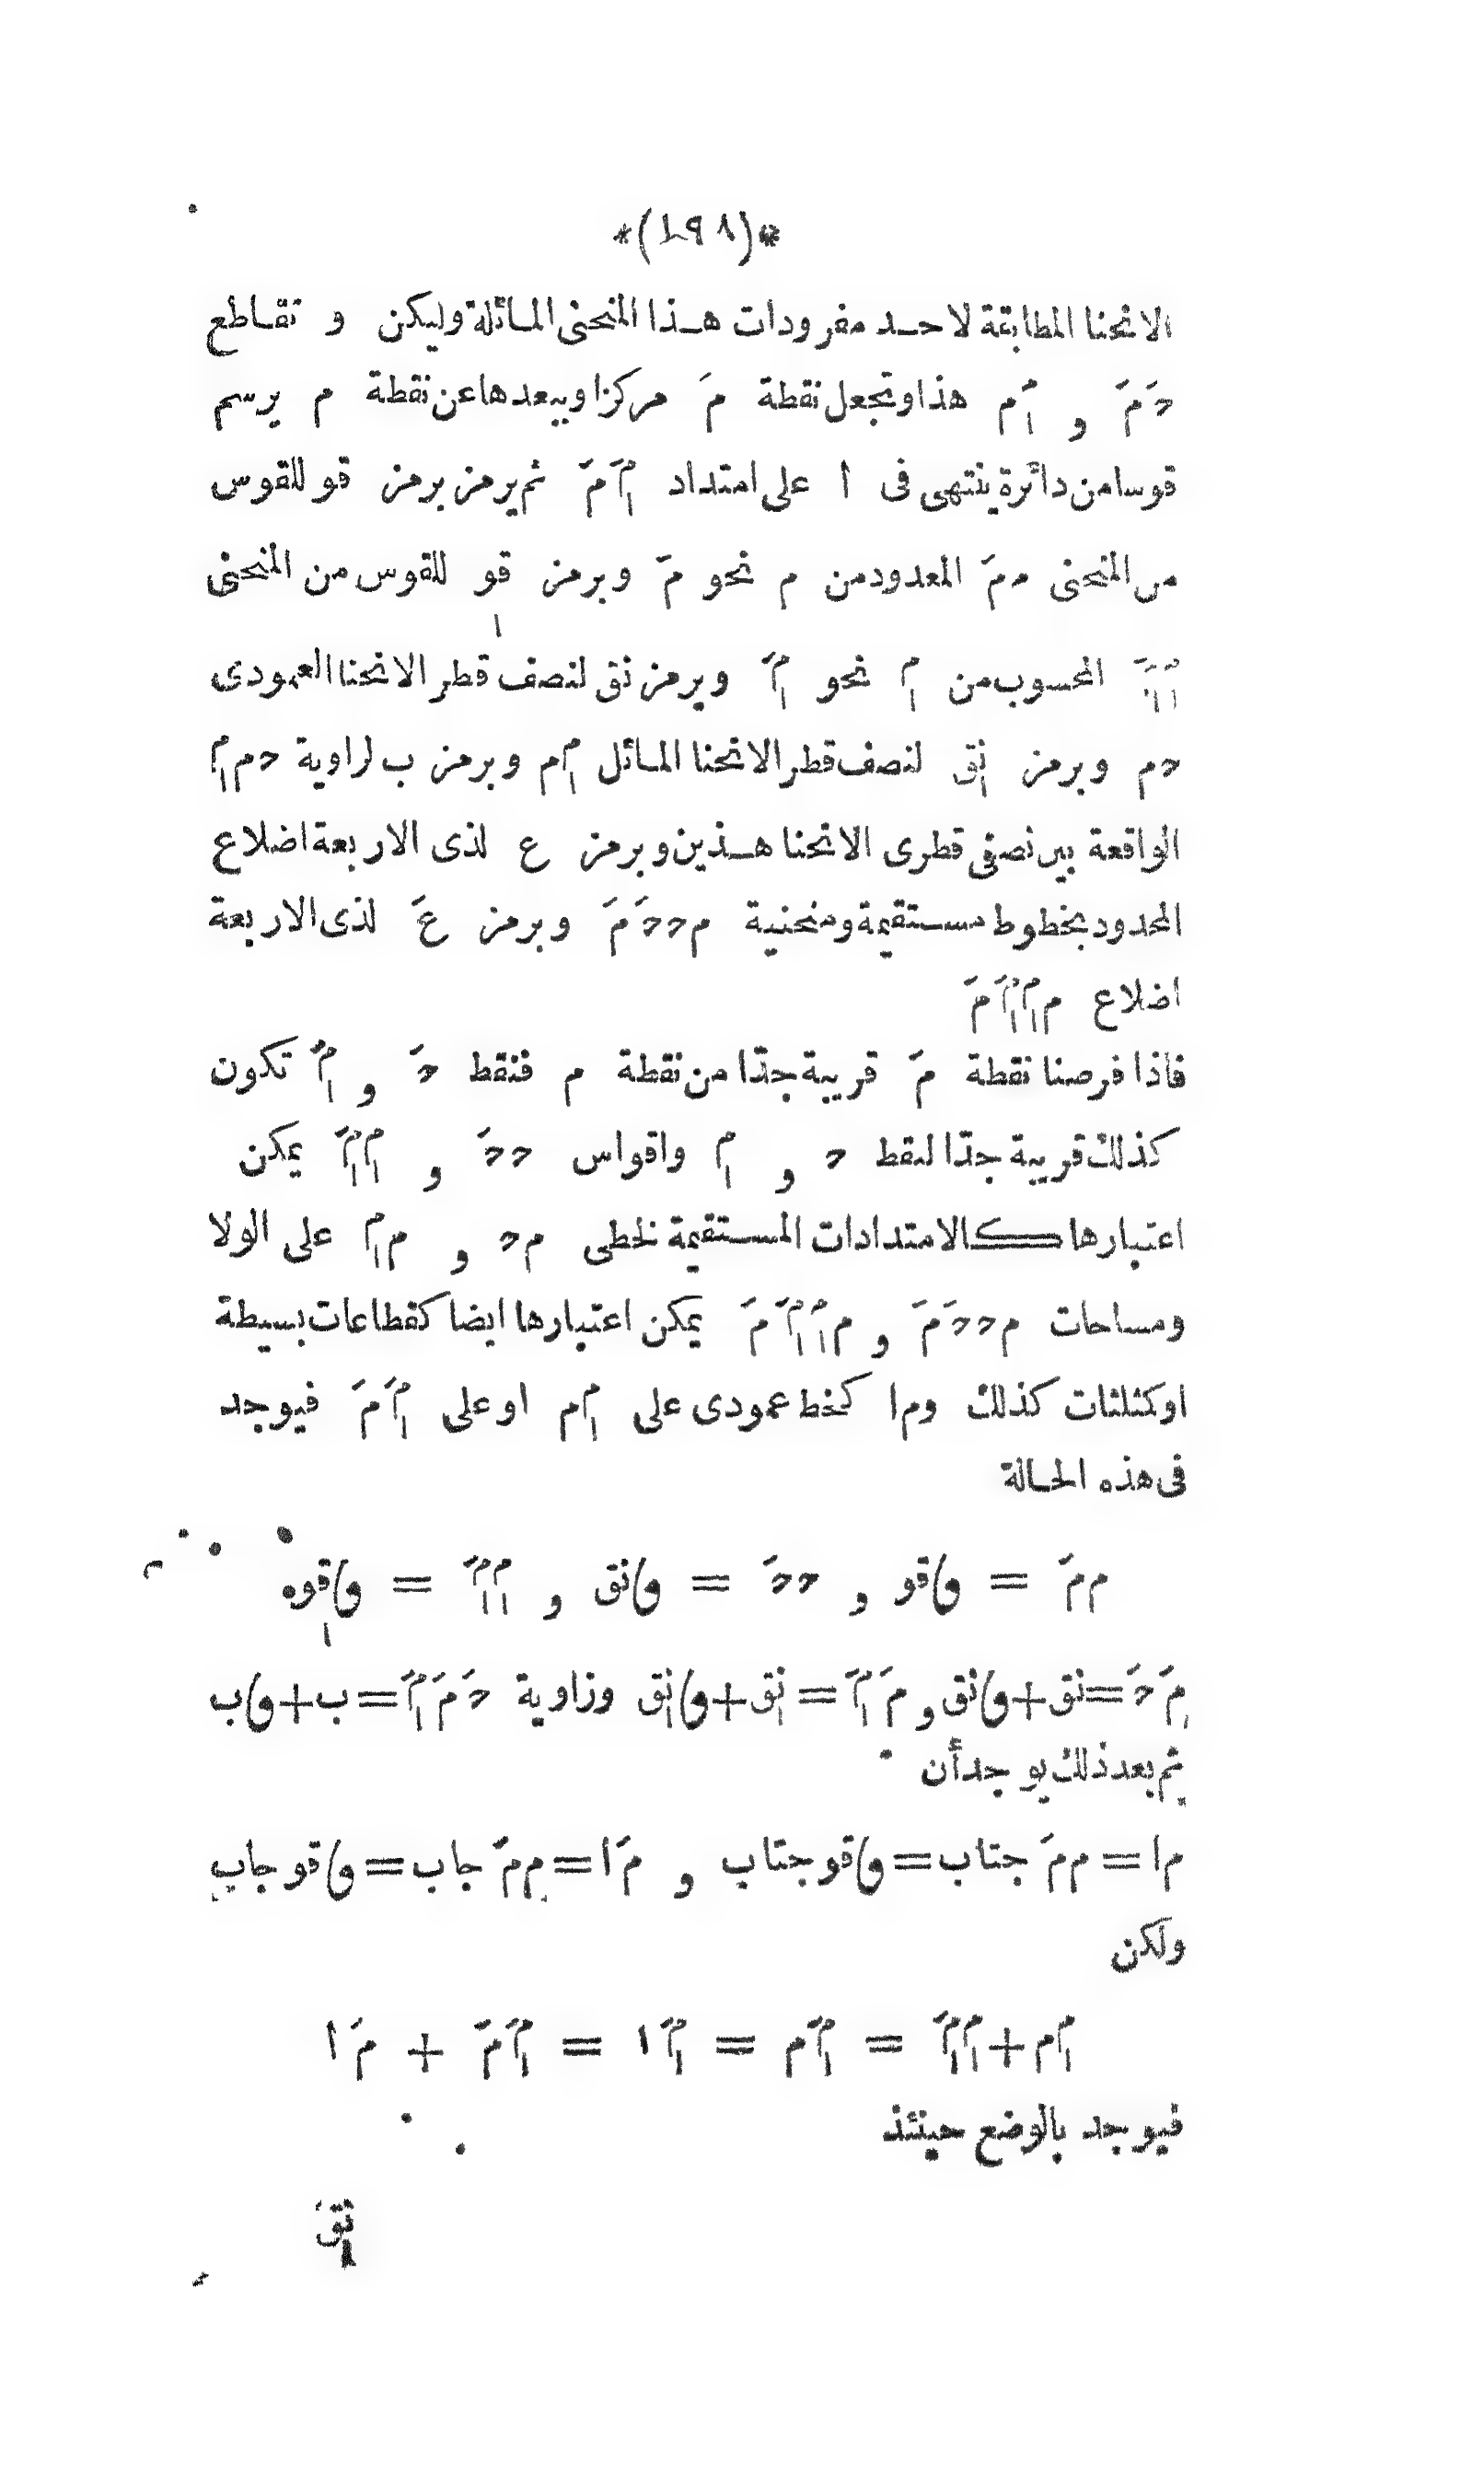 *(١٩٨)*
الانحنا المطابقة لاحد مفرودات هذا المنحنى المائلة وليكن و تقاطع
حَمَ و مَ١م هذا وتجعل نقطة مَ مركزا وببعدها عن نقطة م يرسم
قوسا من دائرة ينتهى فى ا على امتداد مَ١مَ ثم يرمز برمز قو للقوس
من المنحنى ممَ المعدود من م نحو مَ وبرمز قو١ للقوس من المنحنى
م١مَ١ المحسوب من م١ نحو مَ١ وبرمز نق لنصف قطر الانحنا العمودى
حم وبرمز نق١ لنصف قطر الانحنا المائل م١م وبرمز ب لزاوية حمم١
الواقعة بين نصفى قطرى الانحنا هذين وبرمز ع لذى الاربعة اضلاع
المحدود بخطوط مستقيمة ومنحنية مححَمَ وبرمز عَ لذى الاربعة
اضلاع مم١مَ١مَ
فاذا فرضنا نقطة مَ قريبة جدّا من نقطة م فنقط حَ و مَ١ تكون
كذلك قريبة جدّا لنقط ح و م١ واقواس ححَ و م١مَ١ يمكن
اعتبارها كالامتدادات المستقيمة لخطى مح و مم١ على الولا
ومساحات مححَمَ و مم١مَ١مَ يمكن اعتبارها ايضا كقطاعات بسيطة
اوكمثلثات كذلك وم١ كخط عمودى على م١م او على مَ١مَ فيوجد
فى هذه الحالة
ممَ = ﻭ)قو و ححَ = ﻭ)نق و م١مَ١ = ﻭ)قو١
مَحَ=نق+ﻭ)نق و مَمَ١=نق١+ﻭ)نق١ وزاوية حَمَمَ١=ب+ﻭ)ب
ثم بعد ذلك يوجد أن
م١=ممَ جتاب=ﻭ)قو جتاب و مَ١=ممَ جاب=ﻭ)قو جاب
ولكن
م١م+م١مَ١ = مَ١م = مَ١ا = مَ١مَ + مَ١
فيوجد بالوضع حينئذ
نق١